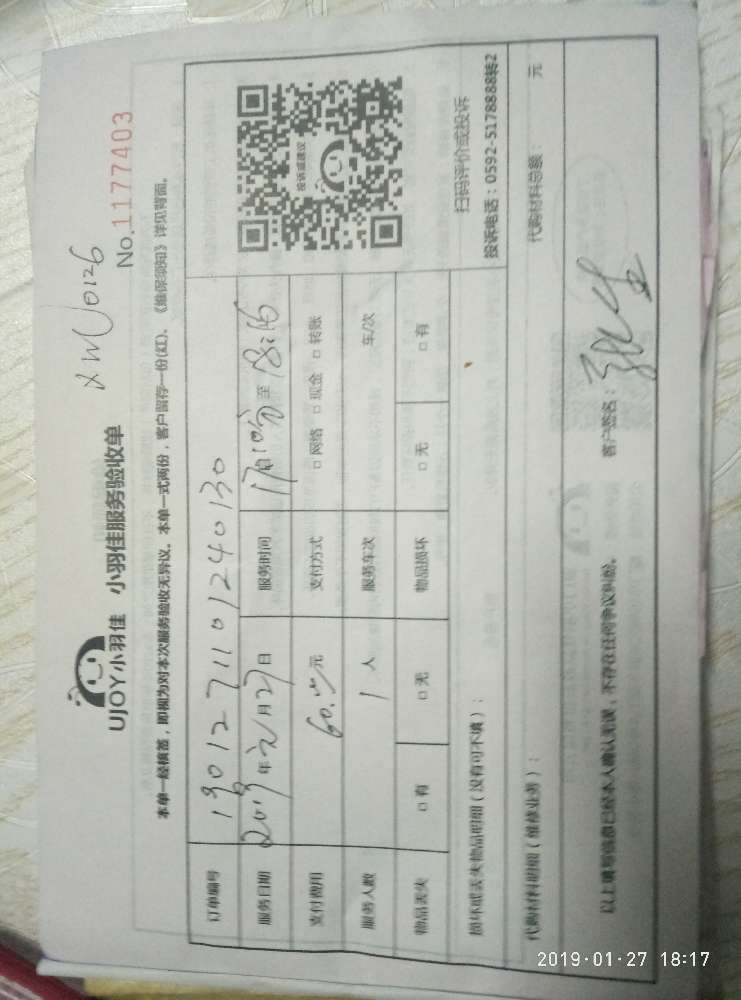 XWU0126
UJOY小羽佳 小羽佳服务验收单
No.1177403
本单一经核签，即视为对本次服务验收无异议。本单一式两份，客户留存一份(红)、《维保须知》详见背面。
订单编号 190127110124 0130
服务日期 2019年元月27日 服务时间 17时10分至18:16
支付费用 60.00元 支付方式 □网络 □现金 □转账
服务人数 1人 服务车次 车/次
物品丢失 □有 □无 物品损坏 □无 □有
投诉或建议
扫码评价或投诉
投诉电话：0592-5178888转2
损坏或丢失物品明细（没有可不填）：
代购材料明细（维修业务）： 代购材料总额： 元
以上填写信息已经本人确认无误，不存在任何争议纠纷。 客户签名：
2019-01-27 18:17